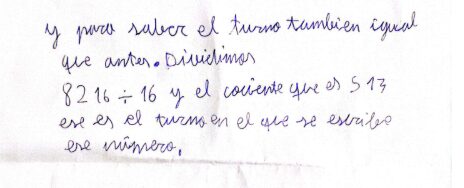 y para saber el turno tambien igual
que antes. Dividimos
8216 ÷ 16 y el cociente que es 513
ese es el turno en el que se escribio
ese número.